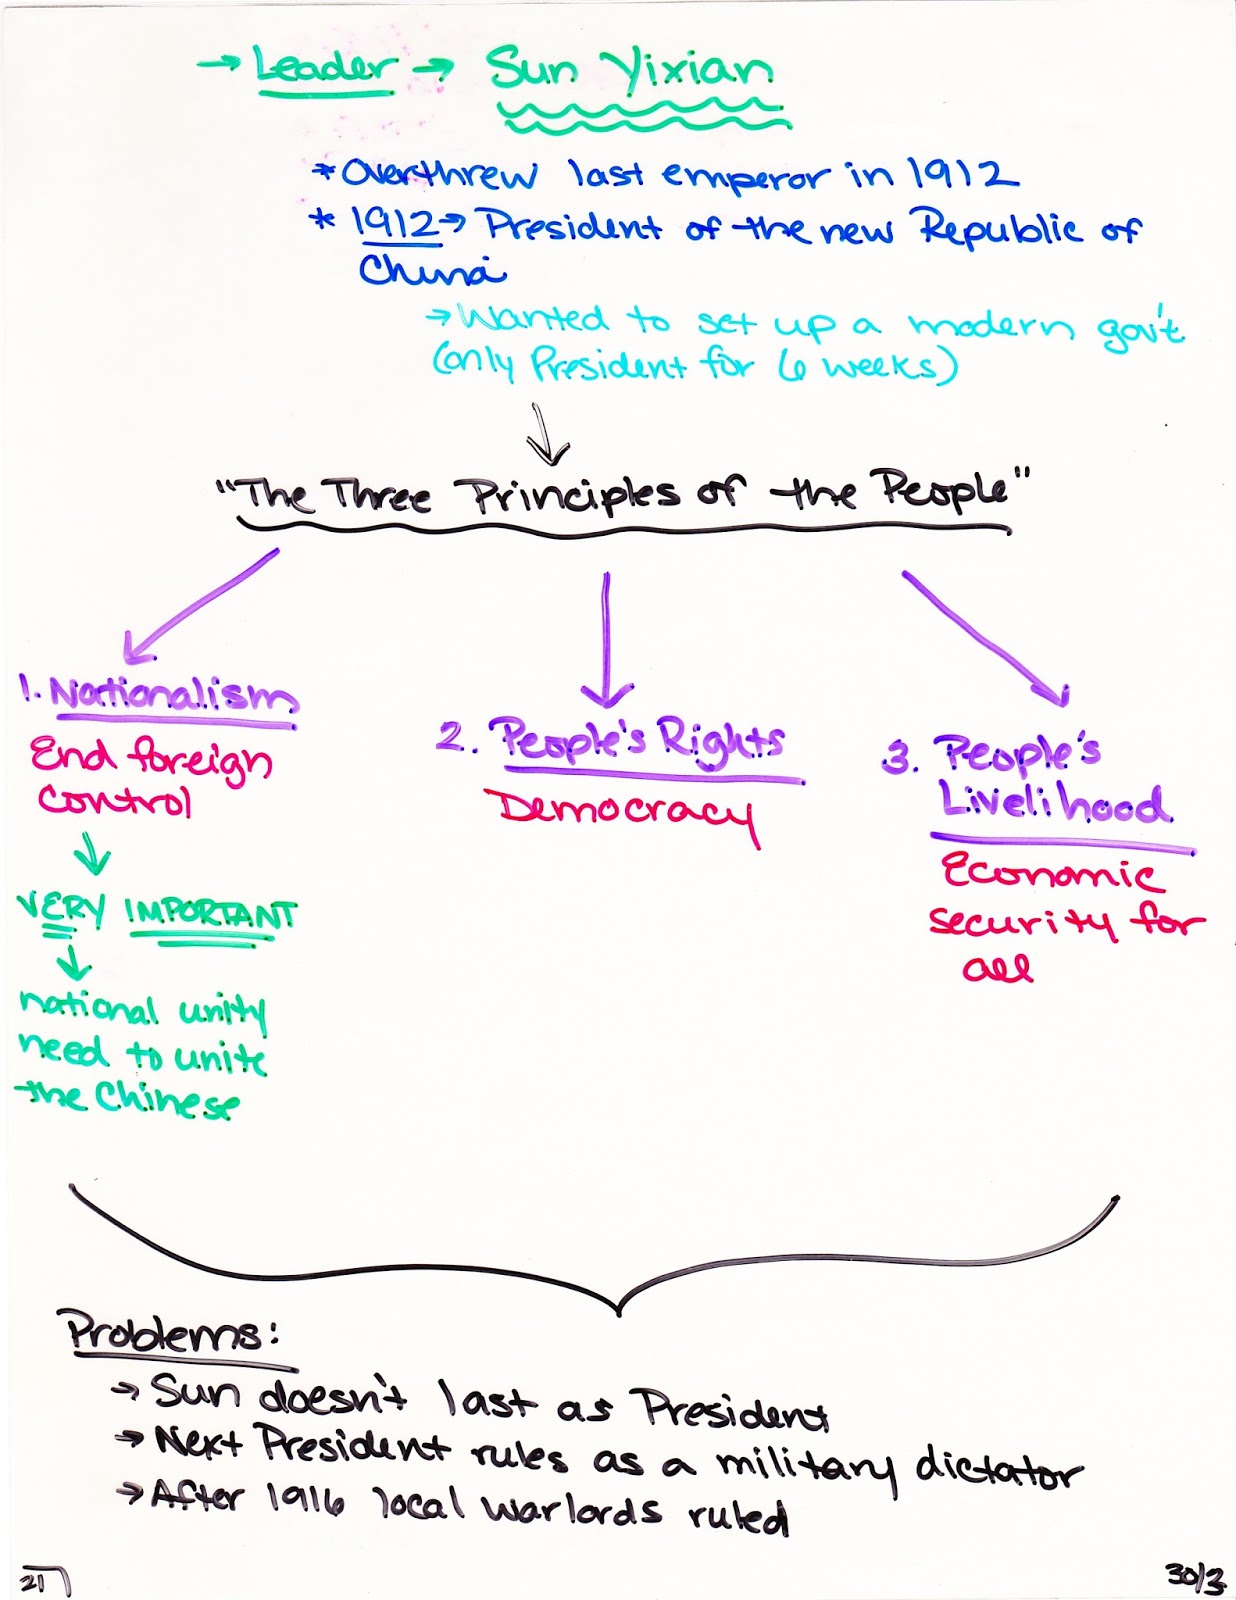 → Leader → Sun Yixian
* Overthrew last emperor in 1912
* 1912→ President of the new Republic of
China
→ Wanted to set up a modern gov't
(only President for 6 weeks)
"The Three Principles of the People"
1. Nationalism
End foreign
control
VERY IMPORTANT
national unity
need to unite
the Chinese
2. People's Rights
Democracy
3. People's
Livelihood
Economic
security for
all
Problems:
→ Sun doesn't last as President
→ Next President rules as a military dictator
→ After 1916 local warlords ruled
21
30/3